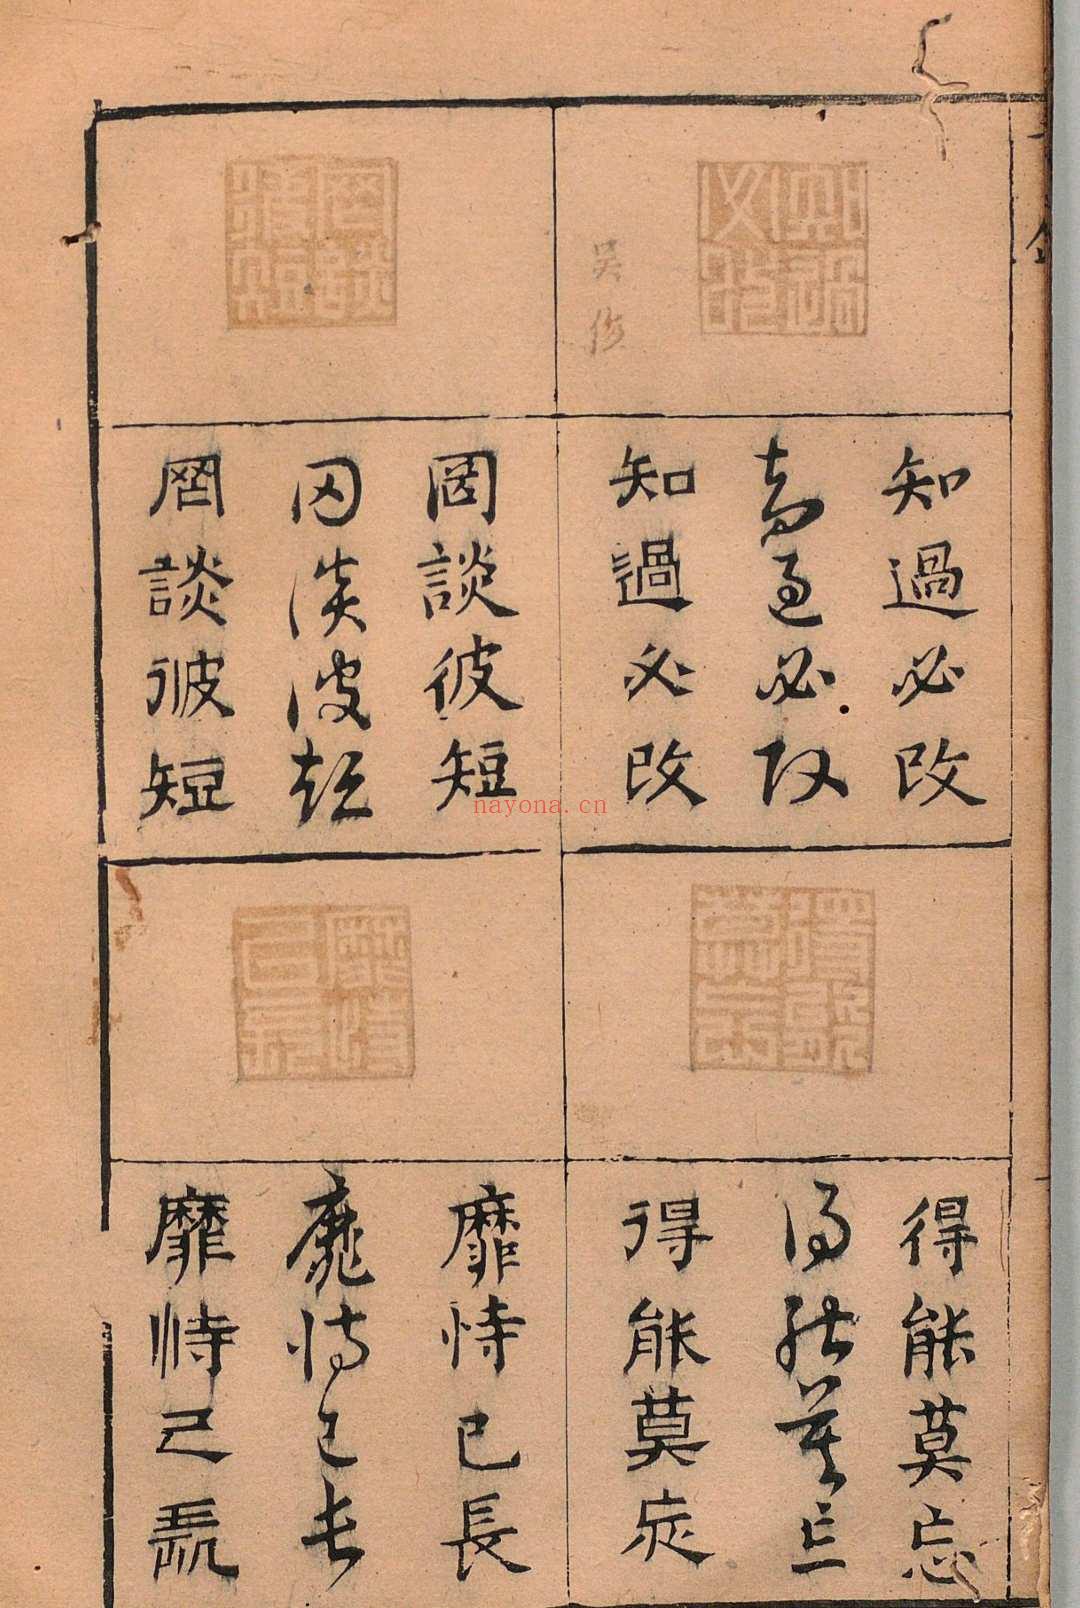 知過必改
知過必改
知過必改
罔談彼短
罔談彼短
罔談彼短
得能莫忘
得能莫忘
得能莫忘
靡恃己長
靡恃己長
靡恃己長
nayona.cn